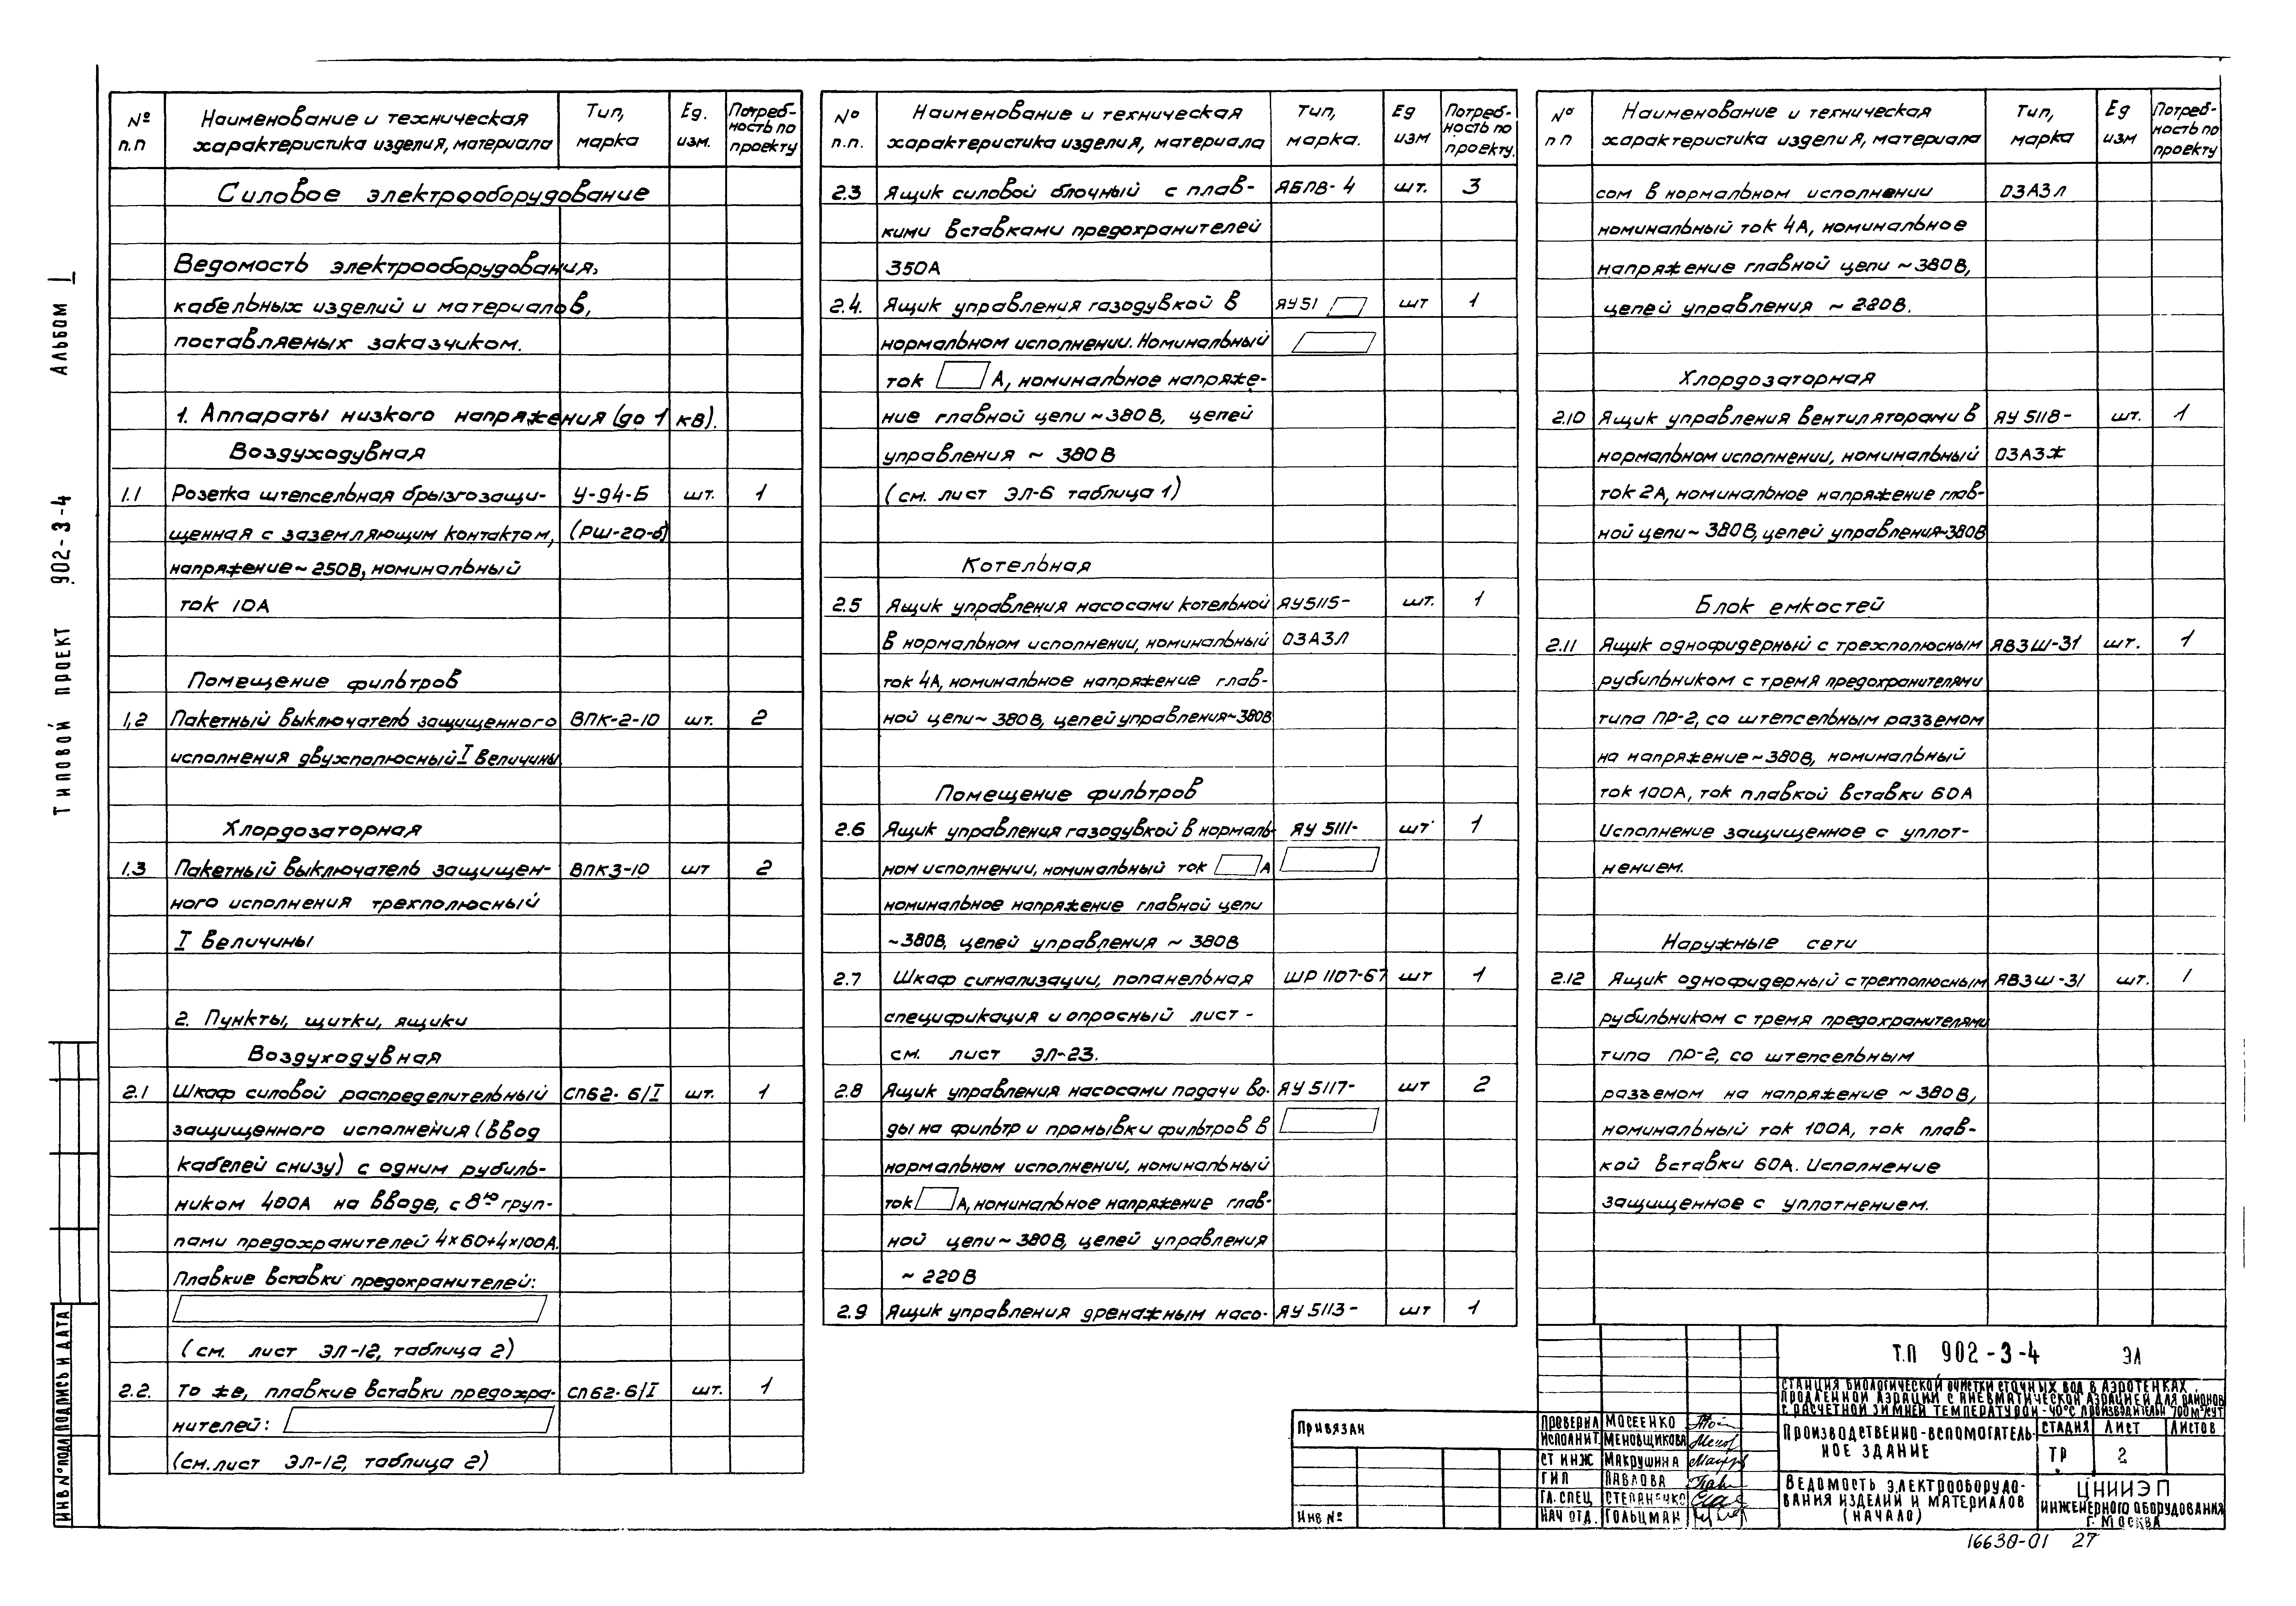 АЛЬБОМ I
ТИПОВОЙ ПРОЕКТ 902-3-4
ИНВ № ПОДЛ ПОДПИСЬ И ДАТА
№ п.п Наименование и техническая характеристика изделия, материала Тип, марка Ед. изм. Потребность по проекту
Силовое электрооборудование
Ведомость электрооборудования,
кабельных изделий и материалов,
поставляемых заказчиком.
1. Аппараты низкого напряжения (до 1 кв).
Воздуходувная
1.1 Розетка штепсельная брызгозащи- У-94-Б шт. 1
щенная с заземляющим контактом, (РШ-20-б)
напряжение ~ 250В, номинальный
ток 10А
Помещение фильтров
1,2 Пакетный выключатель защищенного ВПК-2-10 шт. 2
исполнения двухполюсный I величины
Хлордозаторная
1.3 Пакетный выключатель защищен- ВПК3-10 шт 2
ного исполнения трехполюсный
I величины
2. Пункты, щитки, ящики
Воздуходувная
2.1 Шкаф силовой распределительный СП62-6/I шт. 1
защищенного исполнения (ввод
кабелей снизу) с одним рубиль-
ником 400А на вводе, с 8ю груп-
пами предохранителей 4×60+4×100А.
Плавкие вставки предохранителей:
(см. лист ЭЛ-12, таблица 2)
2.2. То же, плавкие вставки предохра- СП62-6/I шт. 1
нителей:
(см. лист ЭЛ-12, таблица 2)
№ п.п. Наименование и техническая характеристика изделия, материала Тип, марка. Ед изм Потреб-ность по проекту.
2.3 Ящик силовой блочный с плав- ЯБПВ-4 шт. 3
кими вставками предохранителей
350А
2.4. Ящик управления газодувкой в ЯУ51 шт 1
нормальном исполнении. Номинальный
ток А, номинальное напряже-
ние главной цепи ~380В, цепей
управления ~ 380В
(см. лист ЭЛ-6 таблица 1)
Котельная
2.5 Ящик управления насосами котельной ЯУ5115- шт. 1
в нормальном исполнении, номинальный 03А3Л
ток 4А, номинальное напряжение глав-
ной цепи ~ 380В, цепей управления ~380В
Помещение фильтров
2.6 Ящик управления газодувкой в нормаль- ЯУ 5111- шт 1
ном исполнении, номинальный ток А
номинальное напряжение главной цепи
~380В, цепей управления ~ 380В
2.7 Шкаф сигнализации, попанельная ШР 1107-67 шт 1
спецификация и опросный лист -
см. лист ЭЛ-23.
2.8 Ящик управления насосами подачи во- ЯУ 5117- шт 2
ды на фильтр и промывки фильтров в
нормальном исполнении, номинальный
ток А, номинальное напряжение глав-
ной цепи ~ 380В, цепей управления
~ 220В
2.9 Ящик управления дренажным насо- ЯУ 5113- шт 1
№ п п Наименование и техническая характеристика изделия, материала Тип, марка Ед изм Потреб-ность по проекту
сом в нормальном исполнении 03А3Л
номинальный ток 4А, номинальное
напряжение главной цепи ~380В,
цепей управления ~ 220В.
Хлордозаторная
2.10 Ящик управления вентиляторами в ЯУ 5118- шт. 1
нормальном исполнении, номинальный 03А3Ж
ток 2А, номинальное напряжение глав-
ной цепи ~ 380В, цепей управления ~380В
Блок емкостей
2.11 Ящик однофидерный с трехполюсным ЯВЗШ-31 шт. 1
рубильником с тремя предохранителями
типа ПР-2, со штепсельным разъемом
на напряжение ~380В, номинальный
ток 100А, ток плавкой вставки 60А
Исполнение защищенное с уплот-
нением.
Наружные сети
2.12 Ящик однофидерный с трехполюсным ЯВЗШ-31 шт. 1
рубильником с тремя предохранителями
типа ПР-2, со штепсельным
разъемом на напряжение ~380В,
номинальный ток 100А, ток плав-
кой вставки 60А. Исполнение
защищенное с уплотнением.
ПРИВЯЗАН
ИНВ №
ПРОВЕРИЛ МОСЕЕНКО
ИСПОЛНИТ МЕНОВЩИКОВА
СТ ИНЖ МАКРУШИНА
ГИП ПАВЛОВА
ГЛ. СПЕЦ СТЕПАНЕНКО
НАЧ ОТД. ГОЛЬЦМАН
Т.П 902-3-4 ЭЛ
СТАНЦИЯ БИОЛОГИЧЕСКОЙ ОЧИСТКИ СТОЧНЫХ ВОД В АЭРОТЕНКАХ
ПРОДЛЕННОЙ АЭРАЦИИ С ПНЕВМАТИЧЕСКОЙ АЭРАЦИЕЙ ДЛЯ РАЙОНОВ
С РАСЧЕТНОЙ ЗИМНЕЙ ТЕМПЕРАТУРОЙ -40°С ПРОИЗВОДИТЕЛЬН 700 м³/сут
ПРОИЗВОДСТВЕННО-ВСПОМОГАТЕЛЬ-
НОЕ ЗДАНИЕ
СТАДИЯ ЛИСТ ЛИСТОВ
ТР 2
ВЕДОМОСТЬ ЭЛЕКТРООБОРУДО-
ВАНИЯ ИЗДЕЛИЙ И МАТЕРИАЛОВ
(НАЧАЛО)
ЦНИИЭП
ИНЖЕНЕРНОГО ОБОРУДОВАНИЯ
Г. МОСКВА
16638-01 27